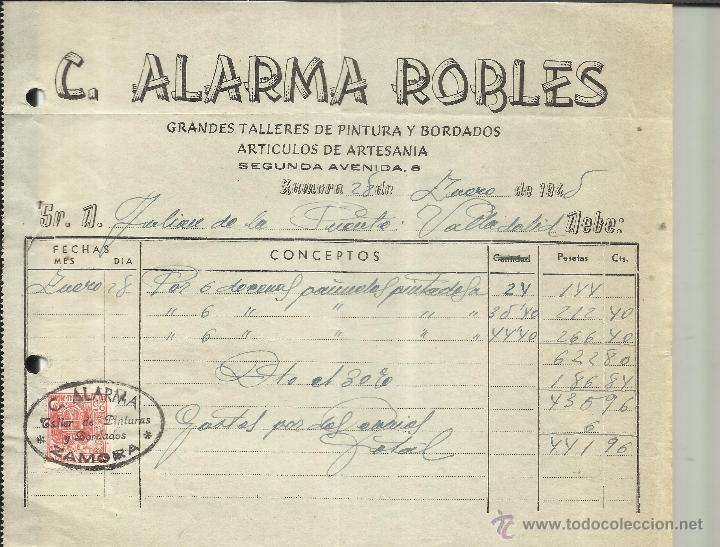 C. ALARMA ROBLES
GRANDES TALLERES DE PINTURA Y BORDADOS
ARTICULOS DE ARTESANIA
SEGUNDA AVENIDA, 8
Zamora 28 de Enero de 1945
Sr. D. Julian de la Fuente. Valladolid Debe:
FECHAS CONCEPTOS Cantidad Pesetas Cts.
MES DIA
Enero 28 Por 6 docenas pañuelos pintados a 24 144
" 6 " " " " 35'40 212 40
" 6 " " " " 44'40 266 40
622 80
Dto el 30% 186 84
435 96
Gastos por dos envios 6
Total 441 96
C. ALARMA
Taller de Pinturas
y Bordados
* ZAMORA *
www.todocoleccion.net